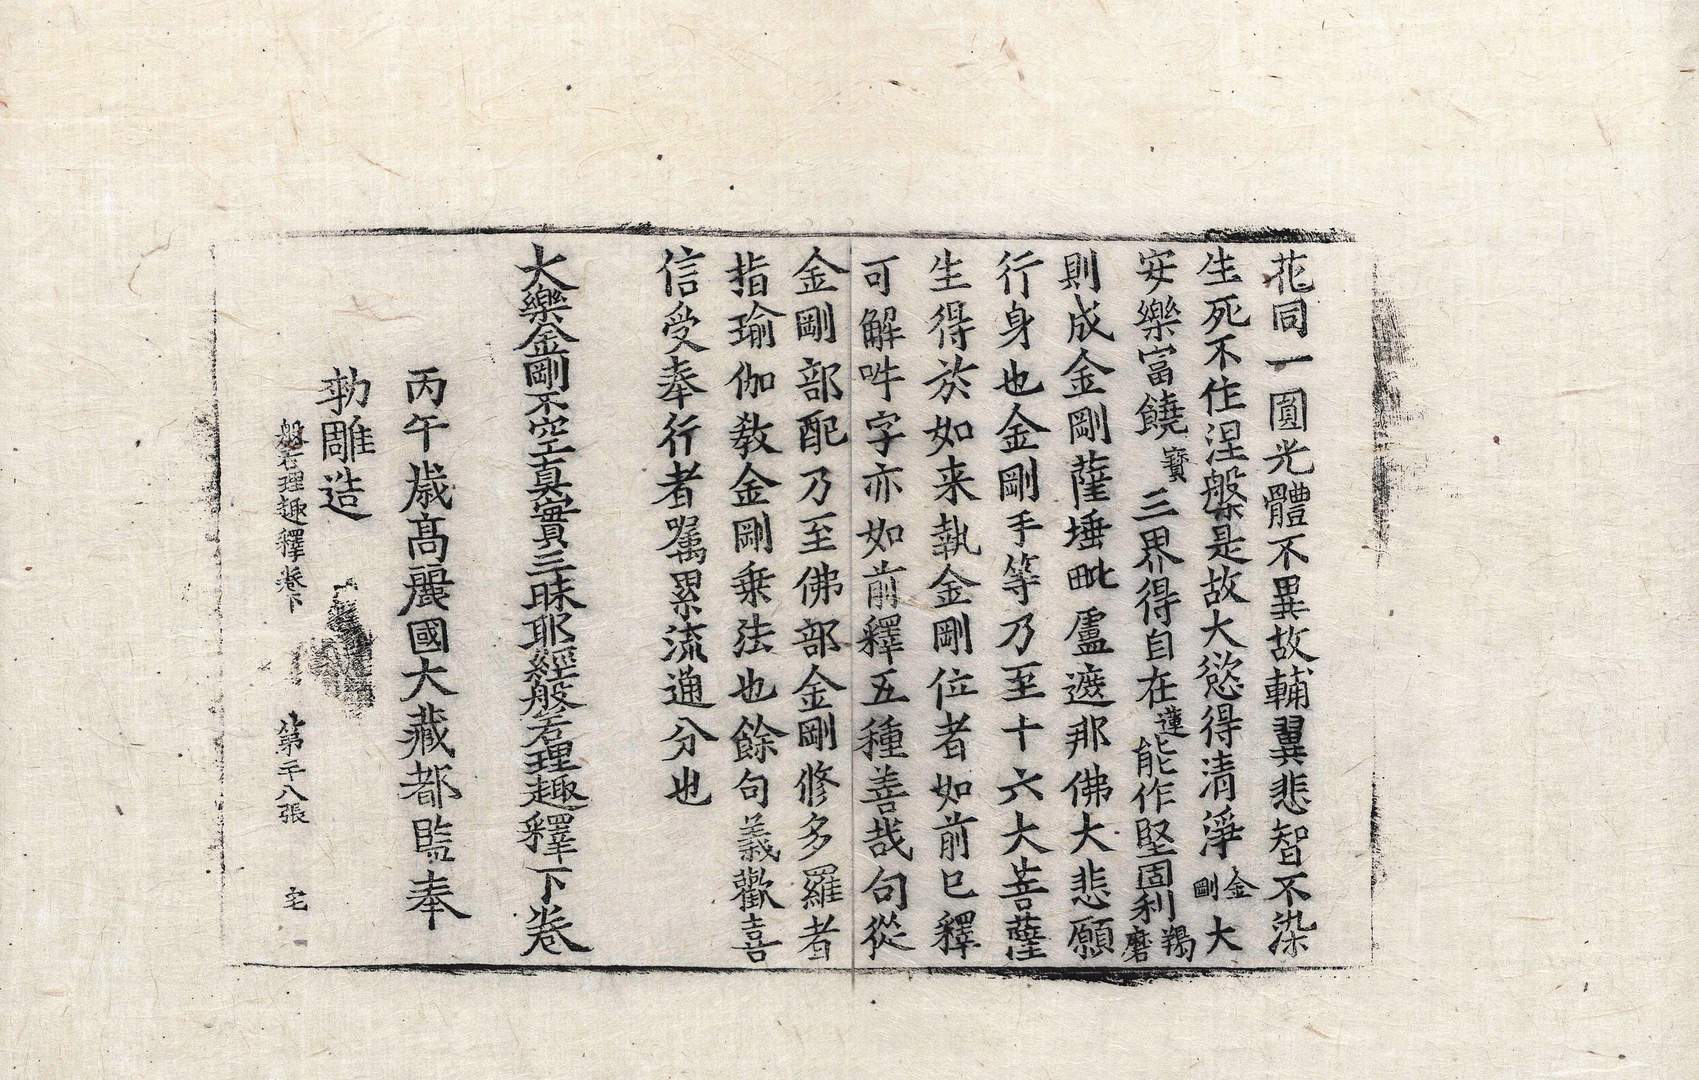 花同一圓光體不異故輔翼悲智不染
生死不住涅槃是故大慾得清淨金剛大
安樂富饒寶三界得自在蓮能作堅固利羯磨
則成金剛薩埵毗盧遮那佛大悲願
行身也金剛手等乃至十六大菩薩
生得於如来執金剛位者如前已釋
可解吽字亦如前釋五種善哉句從
金剛部配乃至佛部金剛修多羅者
指瑜伽教金剛乗法也餘句義歡喜
信受奉行者嘱累流通分也
大樂金剛不空真實三昧耶經般若理趣釋下卷
丙午歲髙麗國大藏都監奉
勑雕造
般若理趣釋卷下 第二十八張 宅